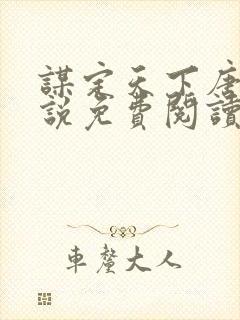 謀定天下唐
說免費閱讀
車螯大人